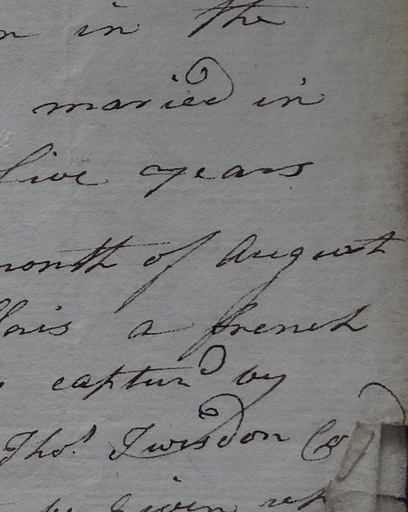 in the
maried in
five years
month of August
a french
captur'd by
Tho.s Twisden
be given